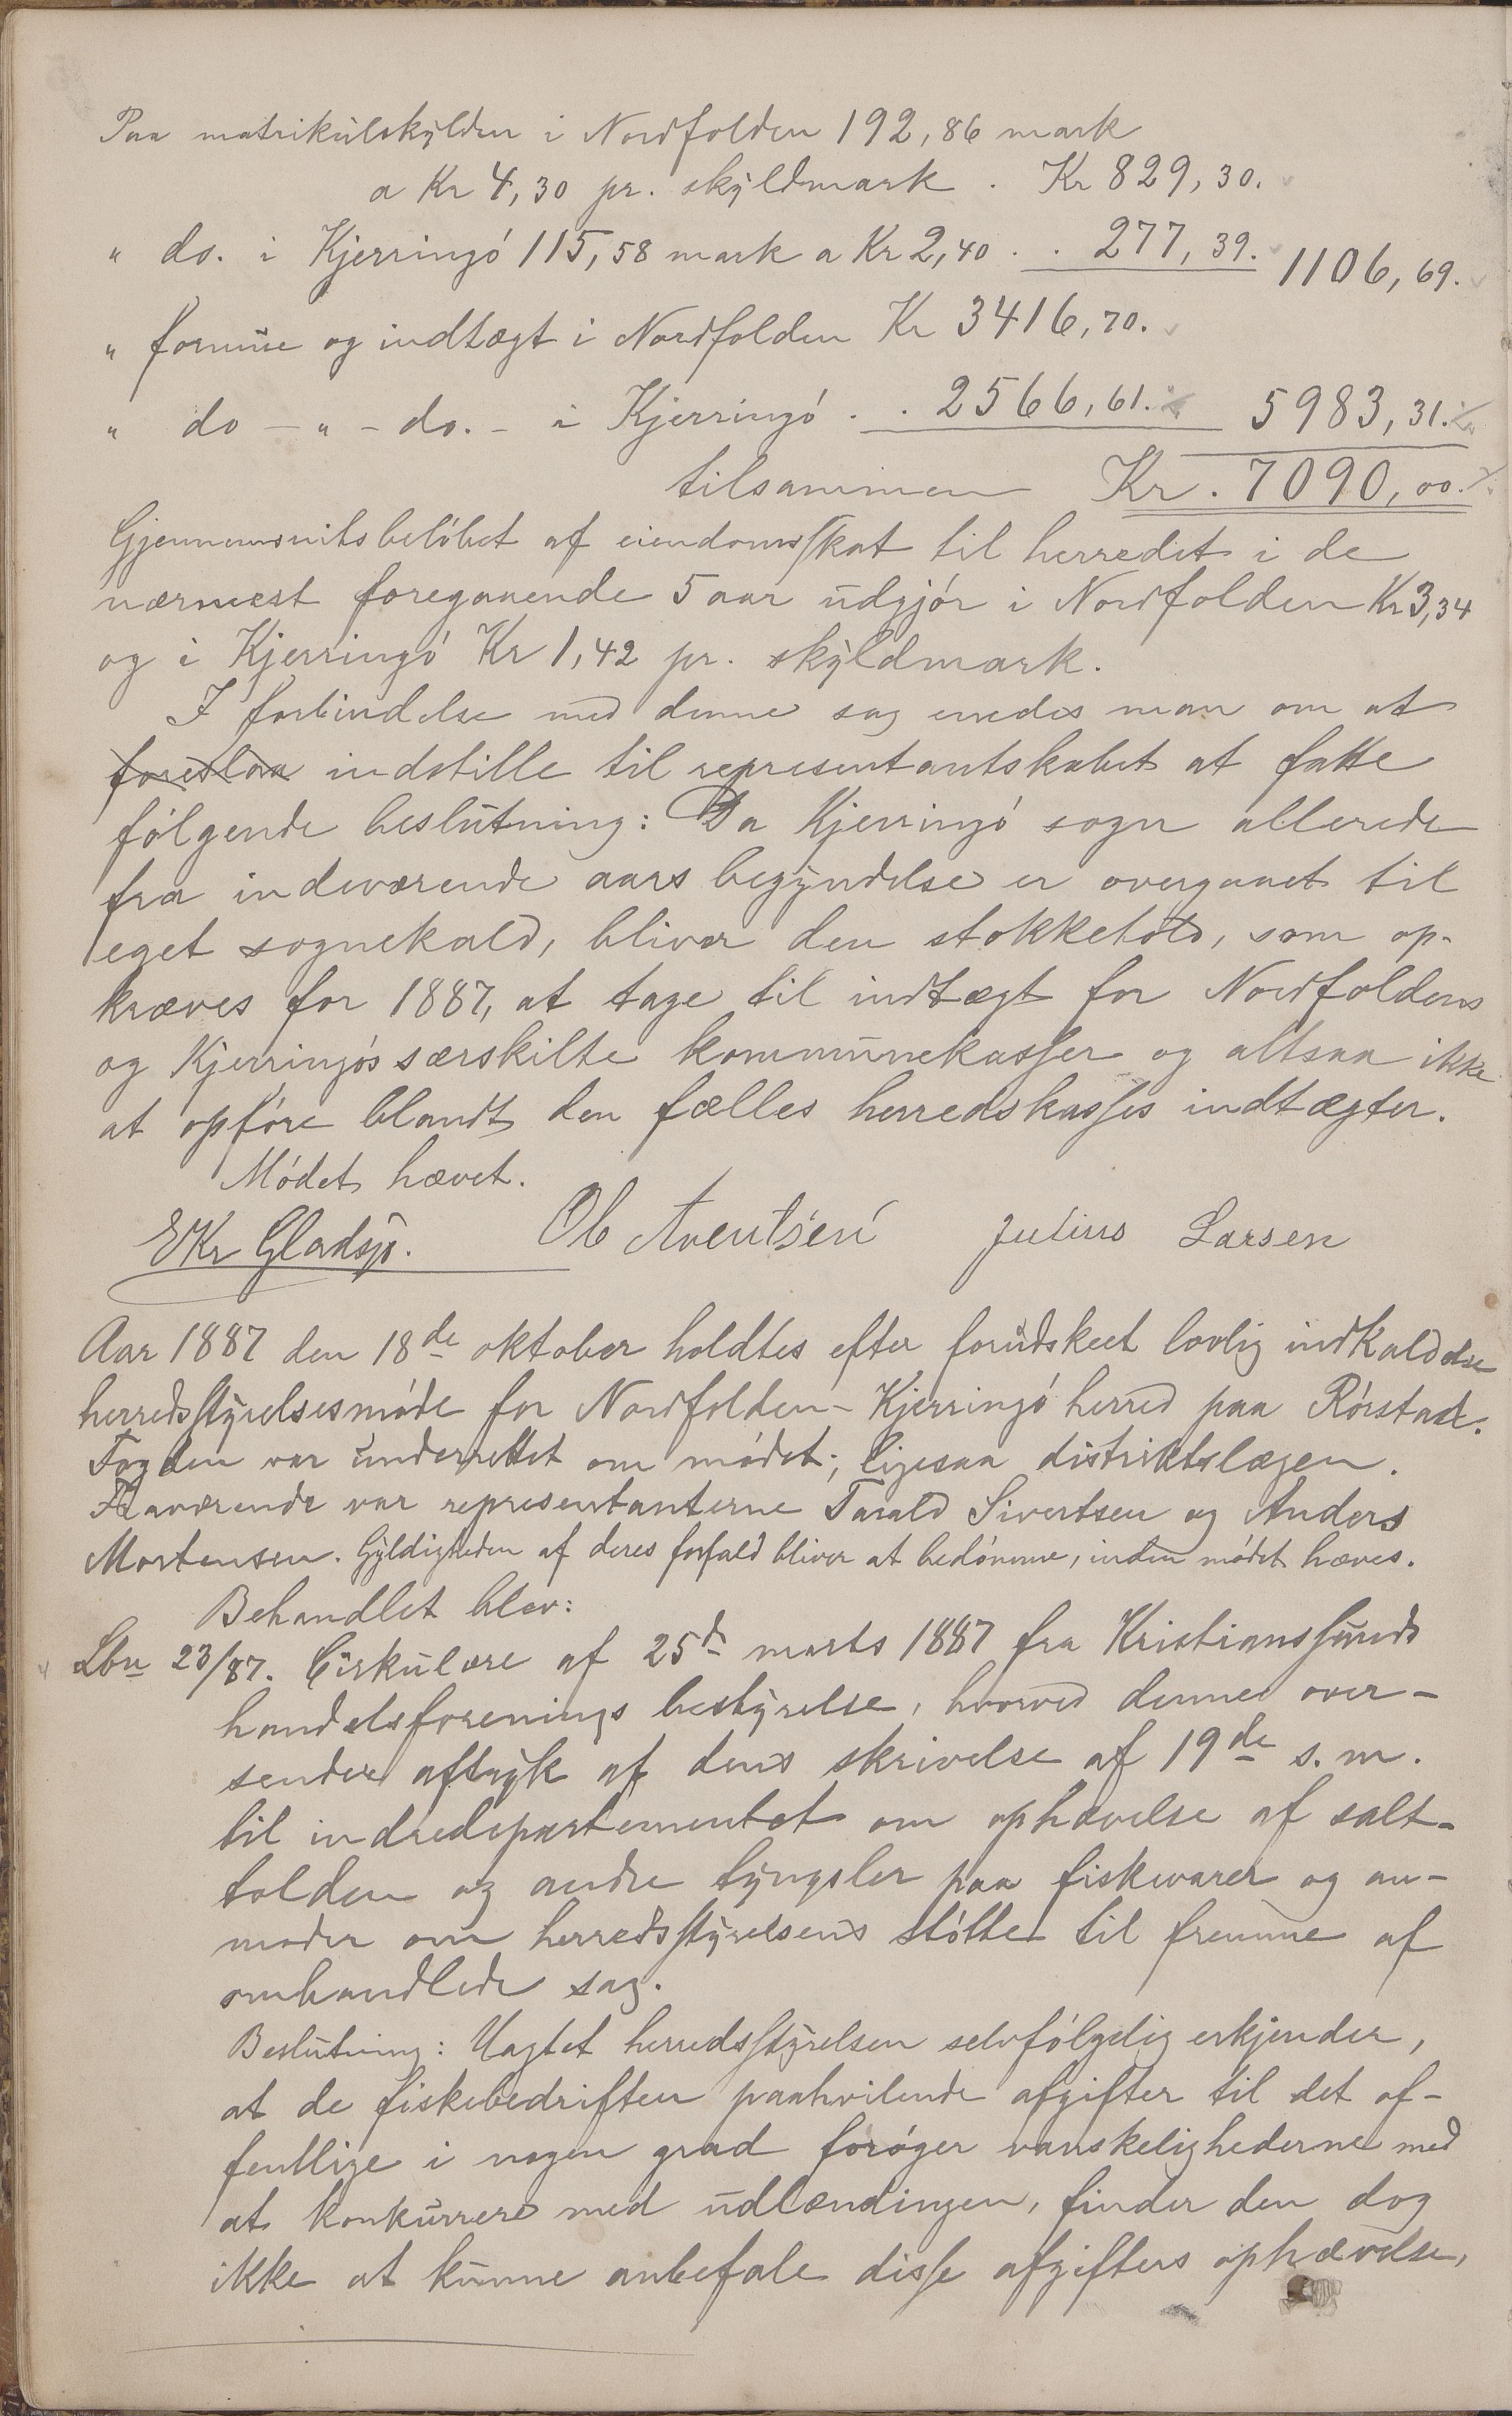 Paa matrikulskylden i Nordfolden 192,86 mark
a Kr 4,30 pr. skyldmark . Kr 829,30.
" do. i Kjerringó 115,58 mark a Kr 2,40 . . 277,39. 1106,69.
" formue og indtægt i Nordfolden Kr 3416,70.
" do - " - do. - i Kjerringó . . 2566,61. 5983,31.
tilsammen Kr. 7090,00.
Gjennemsnitsbelóbet af eiendomsskat til herredet i de
nærmest foregaaende 5 aar udgjór i Nordfolden Kr 3,34
og i Kjerringó Kr 1,42 pr. skyldmark.
I forbindelse med denne sag enedes man om at
foreslaa indstille til representantskabet at fatte
fólgende beslutning: Da Kjerringó sogn allerede
fra indeværende aars begyndelse er overgaaet til
eget sognekald, bliver den stokketold, som op-
kræves for 1887, at tage til indtægt for Nordfoldens
og Kjerringós særskilte kommunekasser og altsaa ikke
at opfóre blandt den fælles herredskasses indtægter.
Módet hævet.
EKr Gladsjo. Ob Aventsen Julius Larsen
Aar 1887 den 18de oktober holdtes efter forudskeet lovlig indkaldelse
herredsstyrelsesmóde for Nordfolden-Kjerringó herred paa Rórstad.
Fogden var underrettet om módet; ligesaa distriktslægen.
Fraværende var representanterne Tarald Sivertsen og Anders
Mortensen. Gyldigheden af deres forfald bliver at bedómme, inden módet hæves.
Behandlet blev:
Lbn 23/87. Cirkulære af 25de marts 1887 fra Kristianssunds
handelsforenings bestyrelse, hvorved denne over-
sender aftryk af dens skrivelse af 19de s.m.
til indredepartementet om ophævelse af salt-
tolden og andre tyngsler paa fiskevarer og an-
moder om herredsstyrelsens stótte til fremme af
omhandlede sag.
Beslutning: Uagtet herredsstyrelsen selvfólgelig erkjender,
at de fiskebedriften paahvilende afgifter til det of-
fentlige i nogen grad foróger vanskelighederne med
at konkurrere med udlændingen, finder den dog
ikke at kunne anbefale disse afgifters ophævelse,